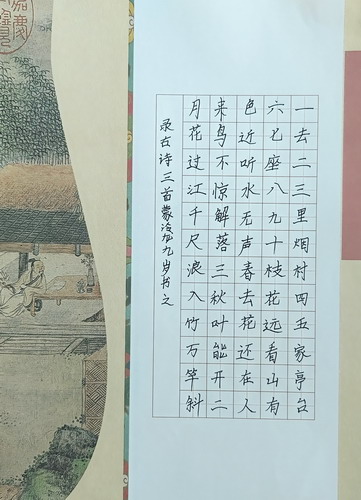 一去二三里烟村四五家亭台
六七座八九十枝花远看山有
色近听水无声春去花还在人
来鸟不惊解落三秋叶能开二
月花过江千尺浪入竹万竿斜
录古诗三首蒙九岁书之